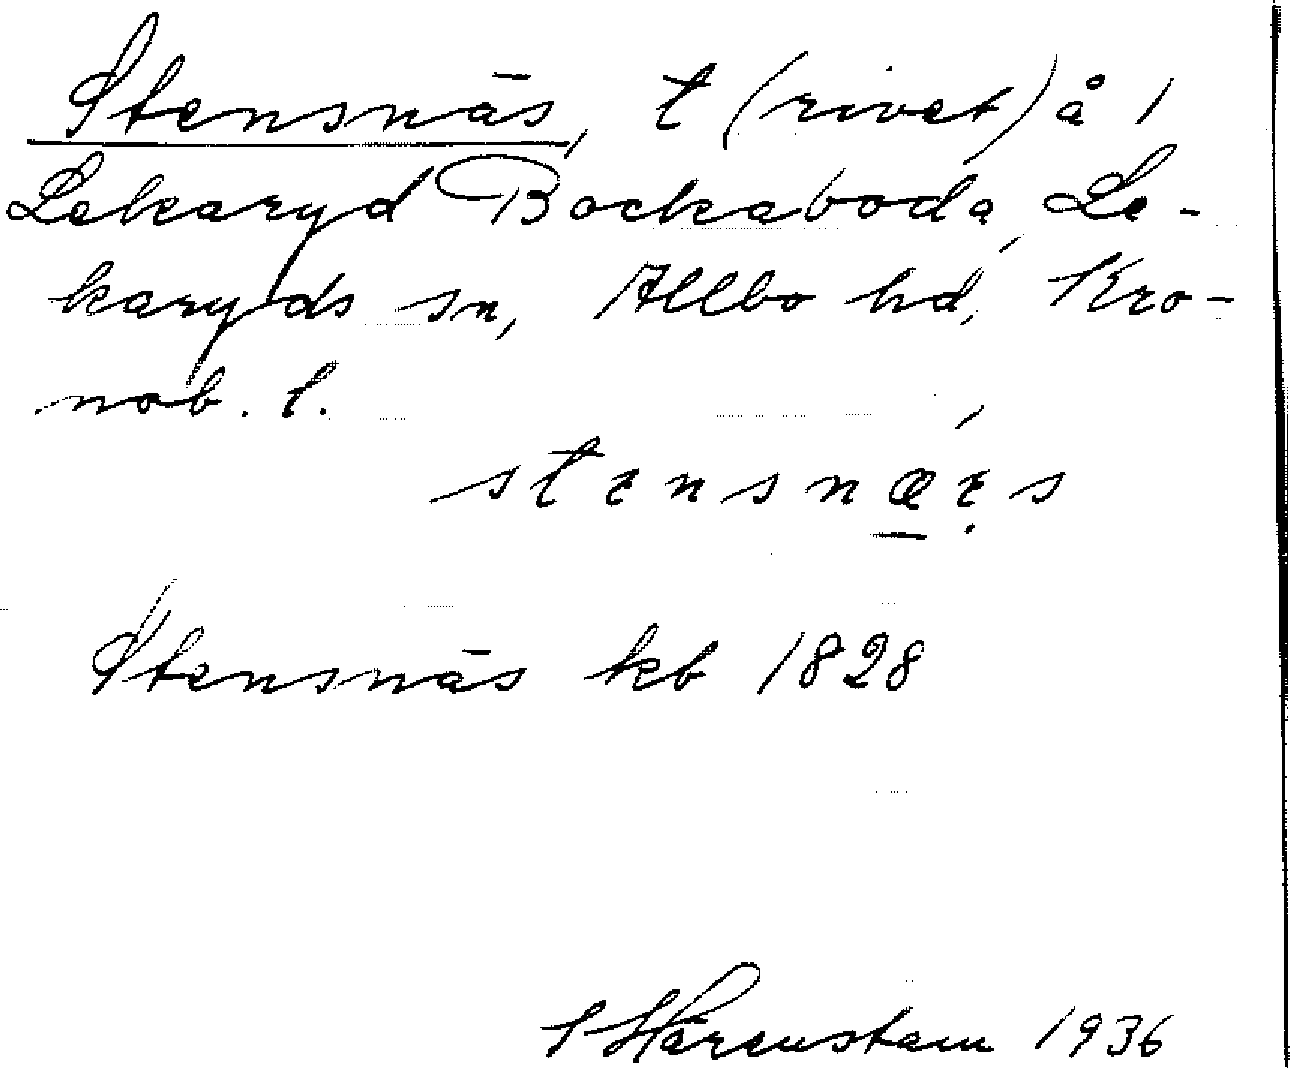 Stensnäs, t (rivet) å 1
Lekaryd Bockaboda, Le-
karyds sn, Allbo hd, Kro-
nob. l.
stensnæs
Stensnäs kb 1828
S Härenstam 1936